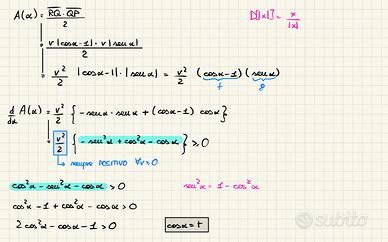 A(α) = RQ · QP / 2
D[|x|] = x / |x|
= r|cosα-1| · r|senα| / 2
= r²/2 |cosα-1| · |senα| = r²/2 (cosα-1)(senα)
f g
d/dα A(α) = r²/2 { -senα · senα + (cosα-1) cosα }
= r²/2 { -sen²α + cos²α - cosα } ≥ 0
→ sempre POSITIVO ∀r>0
cos²α - sen²α - cosα > 0
sen²α = 1 - cos²α
cos²α - 1 + cos²α - cosα > 0
2cos²α - cosα - 1 > 0
cosα = t
subito